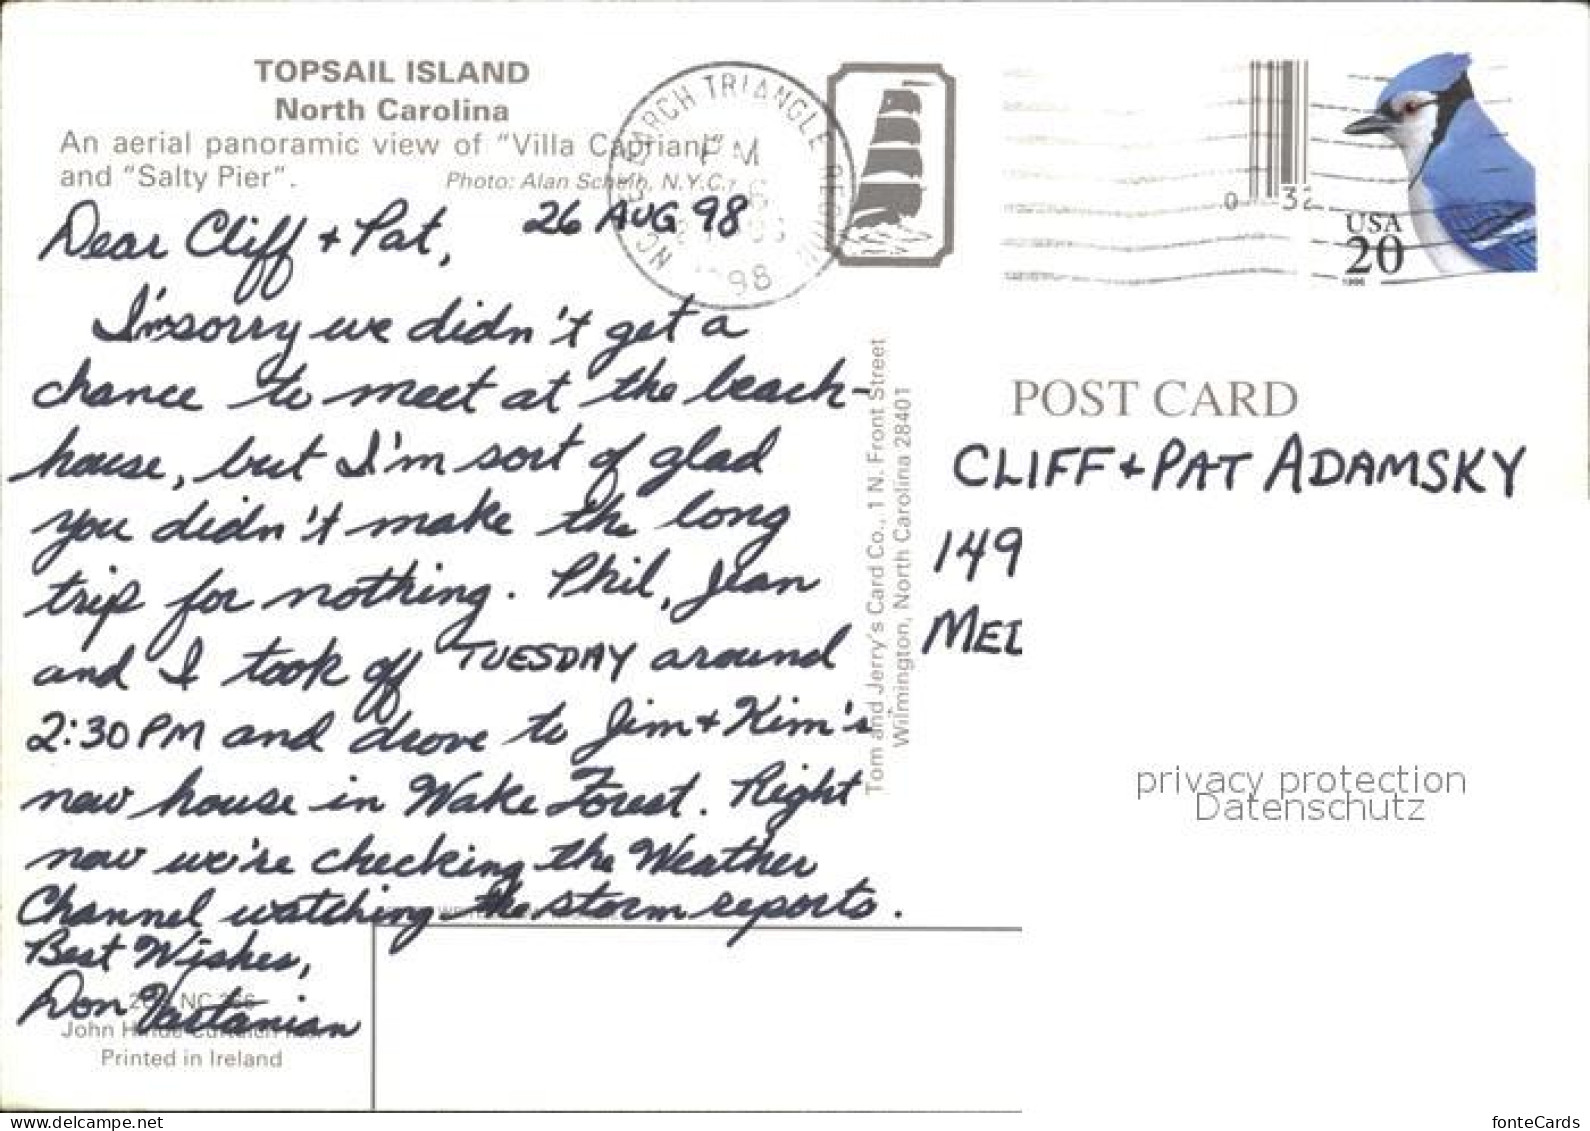 TOPSAIL ISLAND
North Carolina
An aerial panoramic view of "Villa Capriani"
and "Salty Pier".
Photo: Alan Schein, N.Y.C.
26 AUG 98
Dear Cliff + Pat,
I'm sorry we didn't get a
chance to meet at the beach-
house, but I'm sort of glad
you didn't make the long
trip for nothing. Phil, Jean
and I took off TUESDAY around
2:30 PM and drove to Jim + Kim's
new house in Wake Forest. Right
now we're checking the Weather
Channel watching the storm reports.
Best Wishes,
Don Vartanian
NC
John Hinde Curteich Inc.
Printed in Ireland
Tom and Jerry's Card Co., 1 N. Front Street
Wilmington, North Carolina 28401
TRIANGLE
PM
98
NC
0 32
USA
20
1996
POST CARD
CLIFF + PAT ADAMSKY
149
MED
privacy protection
Datenschutz
www.delcampe.net
fonteCards